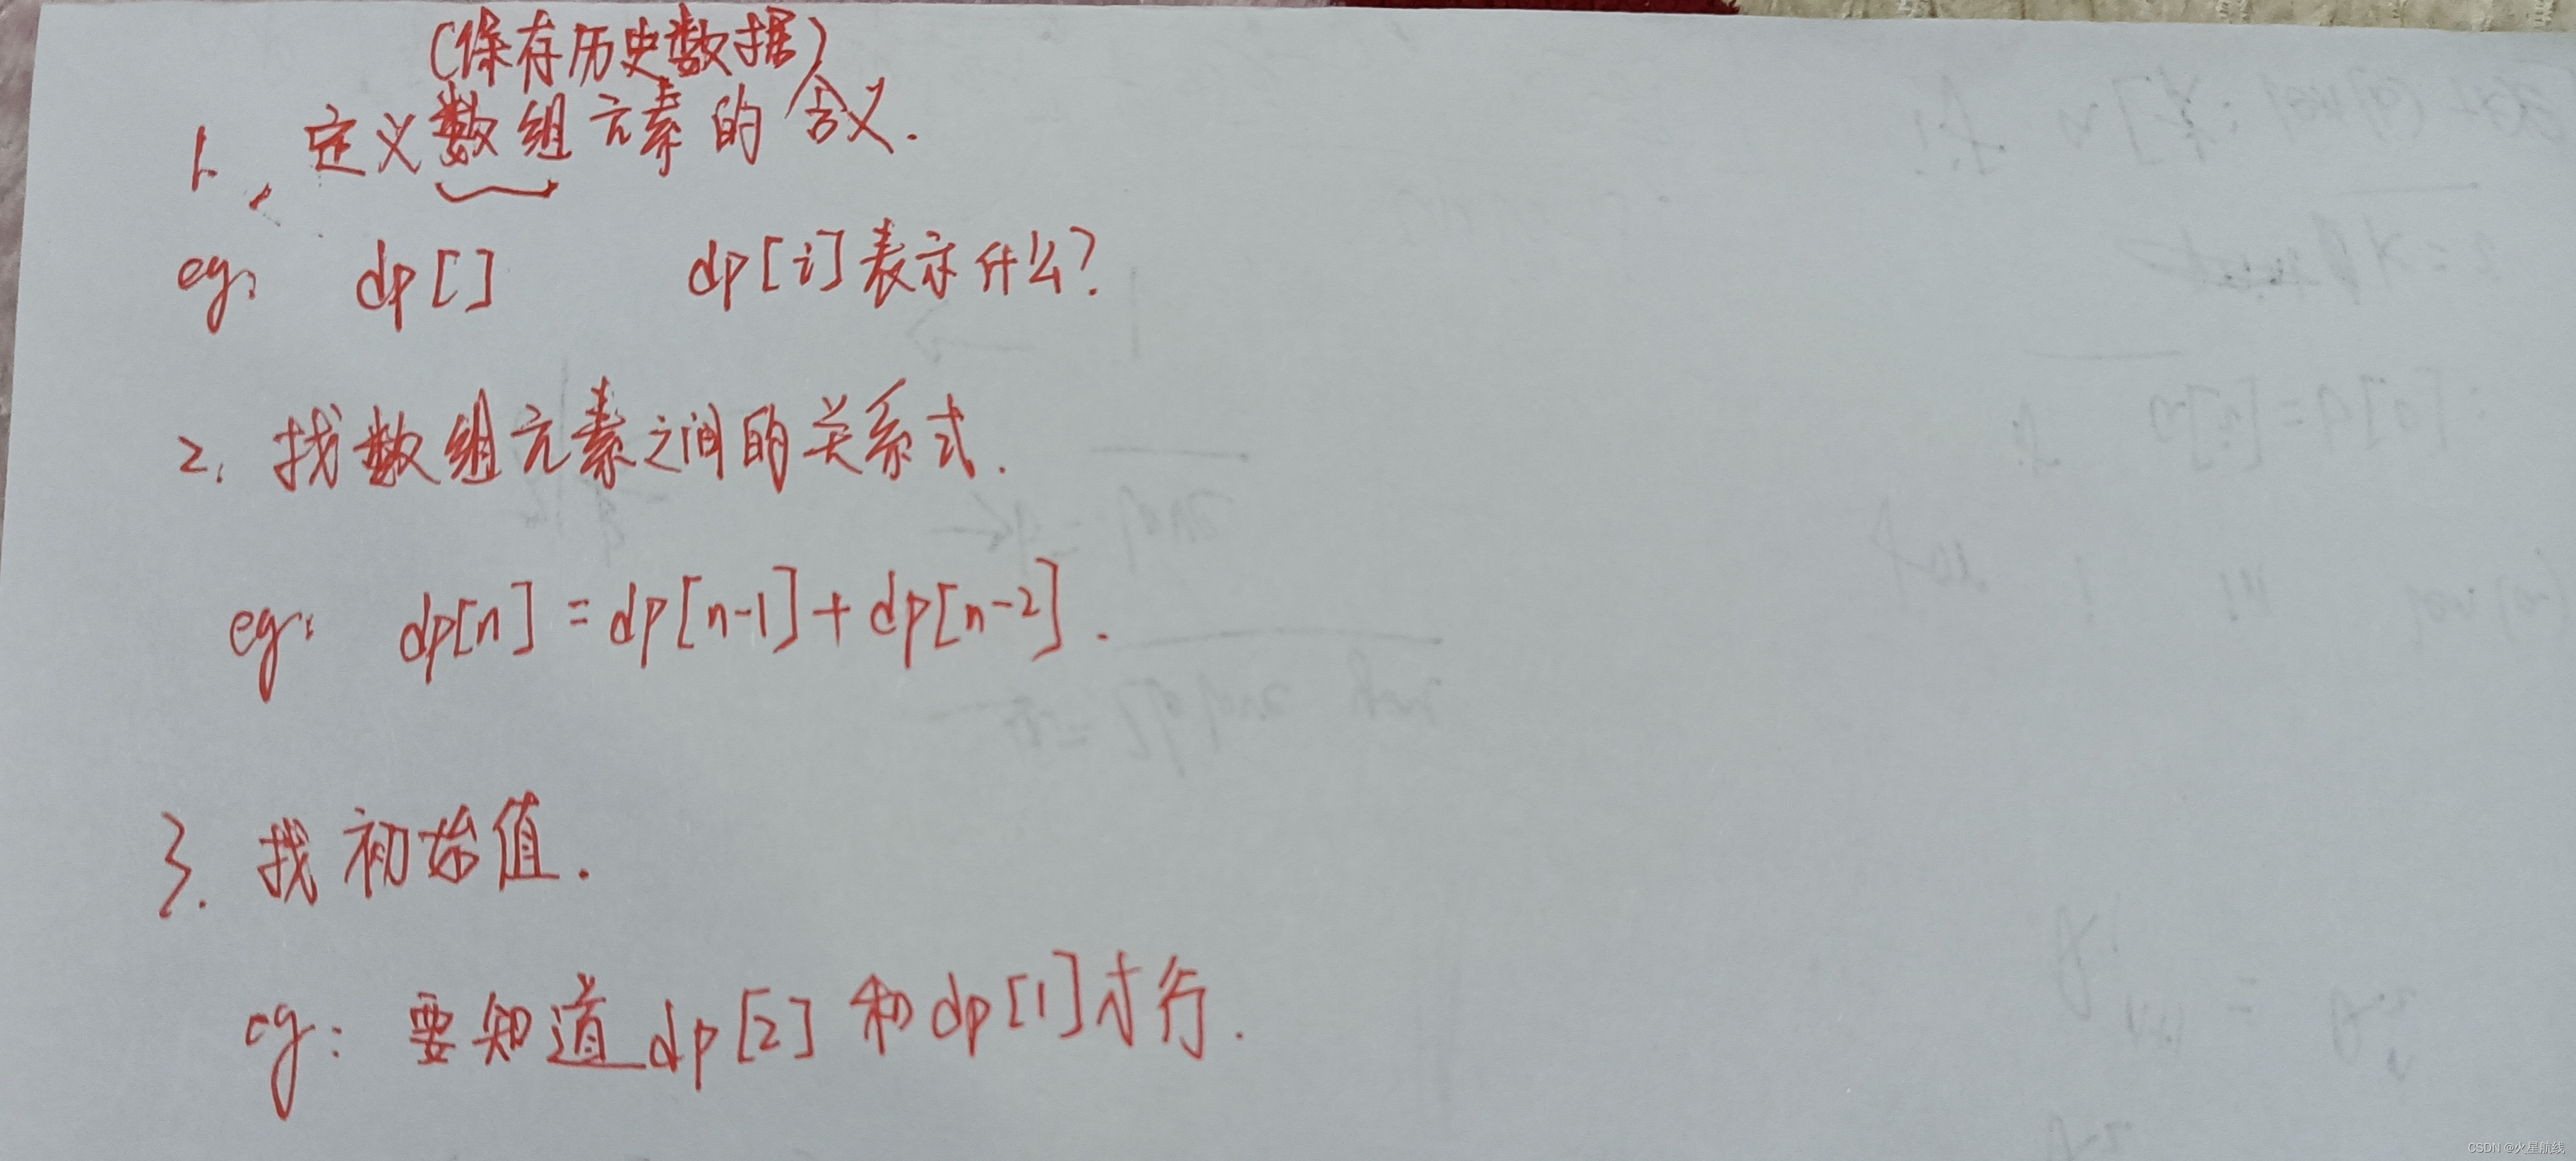 (保存历史数据)
1、定义数组元素的含义.
eg: dp[] dp[i]表示什么?
2. 找数组元素之间的关系式.
eg: dp[n] = dp[n-1] + dp[n-2].
3. 找初始值.
eg: 要知道dp[2]和dp[1]才行.
CSDN @火星航线